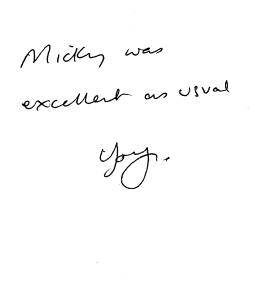 Micky was
excellent as usual